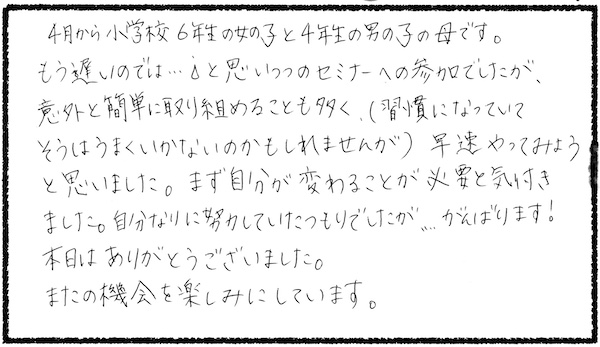 4月から小学校6年生の女の子と4年生の男の子の母です。
もう遅いのでは…💧と思いつつのセミナーへの参加でしたが、
意外と簡単に取り組めることも多く、(習慣になっていて
そうはうまくいかないのかもしれませんが) 早速やってみよう
と思いました。まず自分が変わることが必要と気付き
ました。自分なりに努力していたつもりでしたが… がんばります!
本日はありがとうございました。
またの機会を楽しみにしています。